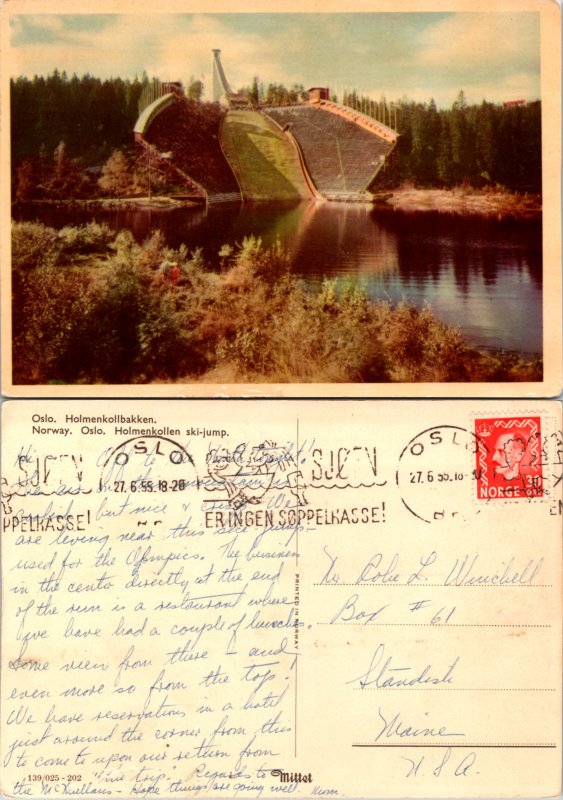 Oslo. Holmenkollbakken.
Norway. Oslo. Holmenkollen ski-jump.
SJØEN
OSLO
27.6.55.18-20
ER INGEN SØPPELKASSE!
SJØEN
ER INGEN SØPPELKASSE!
OSLO
27.6.55.18-20
NORGE
Hi
We are
but nice &
are living near this ski jump-
used for the Olympics. The business
in the center directly at the end
of the run is a restaurant where
we have had a couple of lunches.
Some view from there – and
even more so from the top!
We have reservations in a hotel
just around the corner from this
to come to upon our return from
"side trip". Regards to
the McMullans – Hope things are going well. Mom.
PRINTED IN NORWAY
Cole L. Winchell
Box #61
Standish
Maine
U.S.A.
139/025 - 202
Mittet